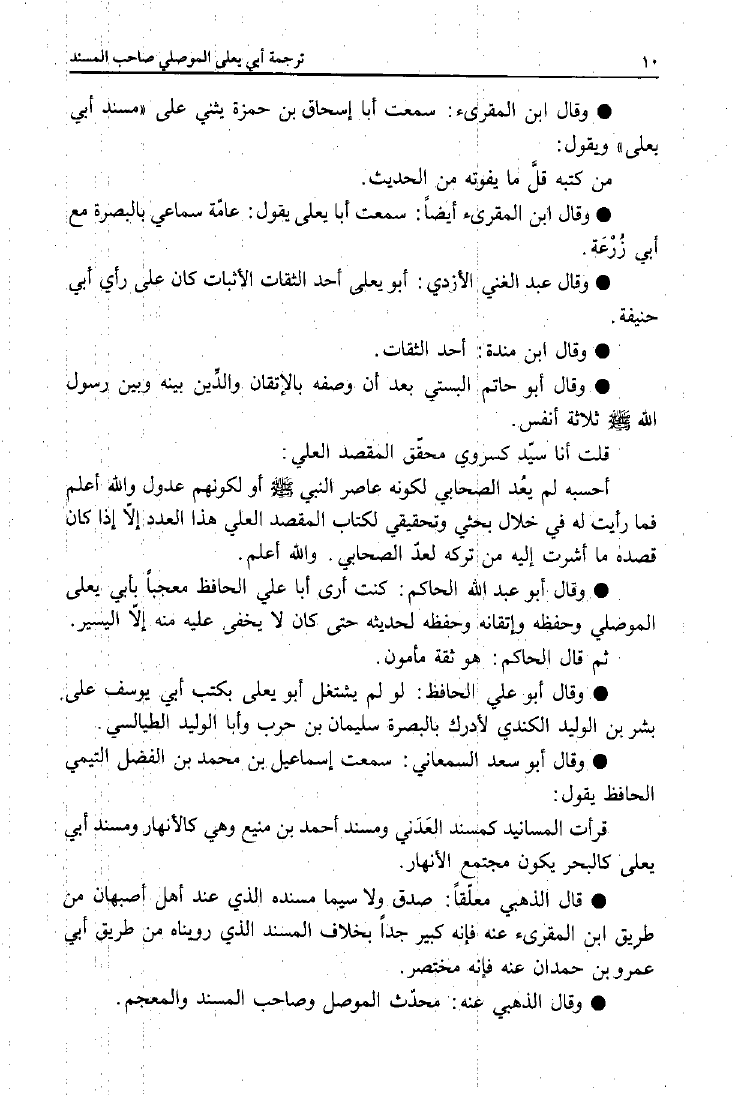 ١٠ ترجمة أبي يعلى الموصلي صاحب المسند
● وقال ابن المقرىء: سمعت أبا إسحاق بن حمزة يثني على «مسند أبي
يعلى» ويقول:
من كتبه قلَّ ما يفوته من الحديث.
● وقال ابن المقرىء أيضاً: سمعت أبا يعلى يقول: عامّة سماعي بالبصرة مع
أبي زُرْعَة.
● وقال عبد الغني الأزدي: أبو يعلى أحد الثقات الأثبات كان على رأي أبي
حنيفة.
● وقال ابن مندة: أحد الثقات.
● وقال أبو حاتم البستي بعد أن وصفه بالإتقان والدِّين بينه وبين رسول
الله ﷺ ثلاثة أنفس.
قلت أنا سيّد كسروي محقّق المقصد العلي:
أحسبه لم يعُد الصحابي لكونه عاصر النبي ﷺ أو لكونهم عدول والله أعلم
فما رأيت له في خلال بحثي وتحقيقي لكتاب المقصد العلي هذا العدد إلّا إذا كان
قصده ما أشرت إليه من تركه لعدّ الصحابي. والله أعلم.
● وقال أبو عبد الله الحاكم: كنت أرى أبا علي الحافظ معجباً بأبي يعلى
الموصلي وحفظه وإتقانه وحفظه لحديثه حتى كان لا يخفى عليه منه إلّا اليسير.
ثم قال الحاكم: هو ثقة مأمون.
● وقال أبو علي الحافظ: لو لم يشتغل أبو يعلى بكتب أبي يوسف على
بشر بن الوليد الكندي لأدرك بالبصرة سليمان بن حرب وأبا الوليد الطيالسي.
● وقال أبو سعد السمعاني: سمعت إسماعيل بن محمد بن الفضل التيمي
الحافظ يقول:
قرأت المسانيد كمسند العَدَني ومسند أحمد بن منيع وهي كالأنهار ومسند أبي
يعلى كالبحر يكون مجتمع الأنهار.
● قال الذهبي معلّقاً: صدق ولا سيما مسنده الذي عند أهل أصبهان من
طريق ابن المقرىء عنه فإنه كبير جداً بخلاف المسند الذي رويناه من طريق أبي
عمرو بن حمدان عنه فإنه مختصر.
● وقال الذهبي عنه: محدّث الموصل وصاحب المسند والمعجم.